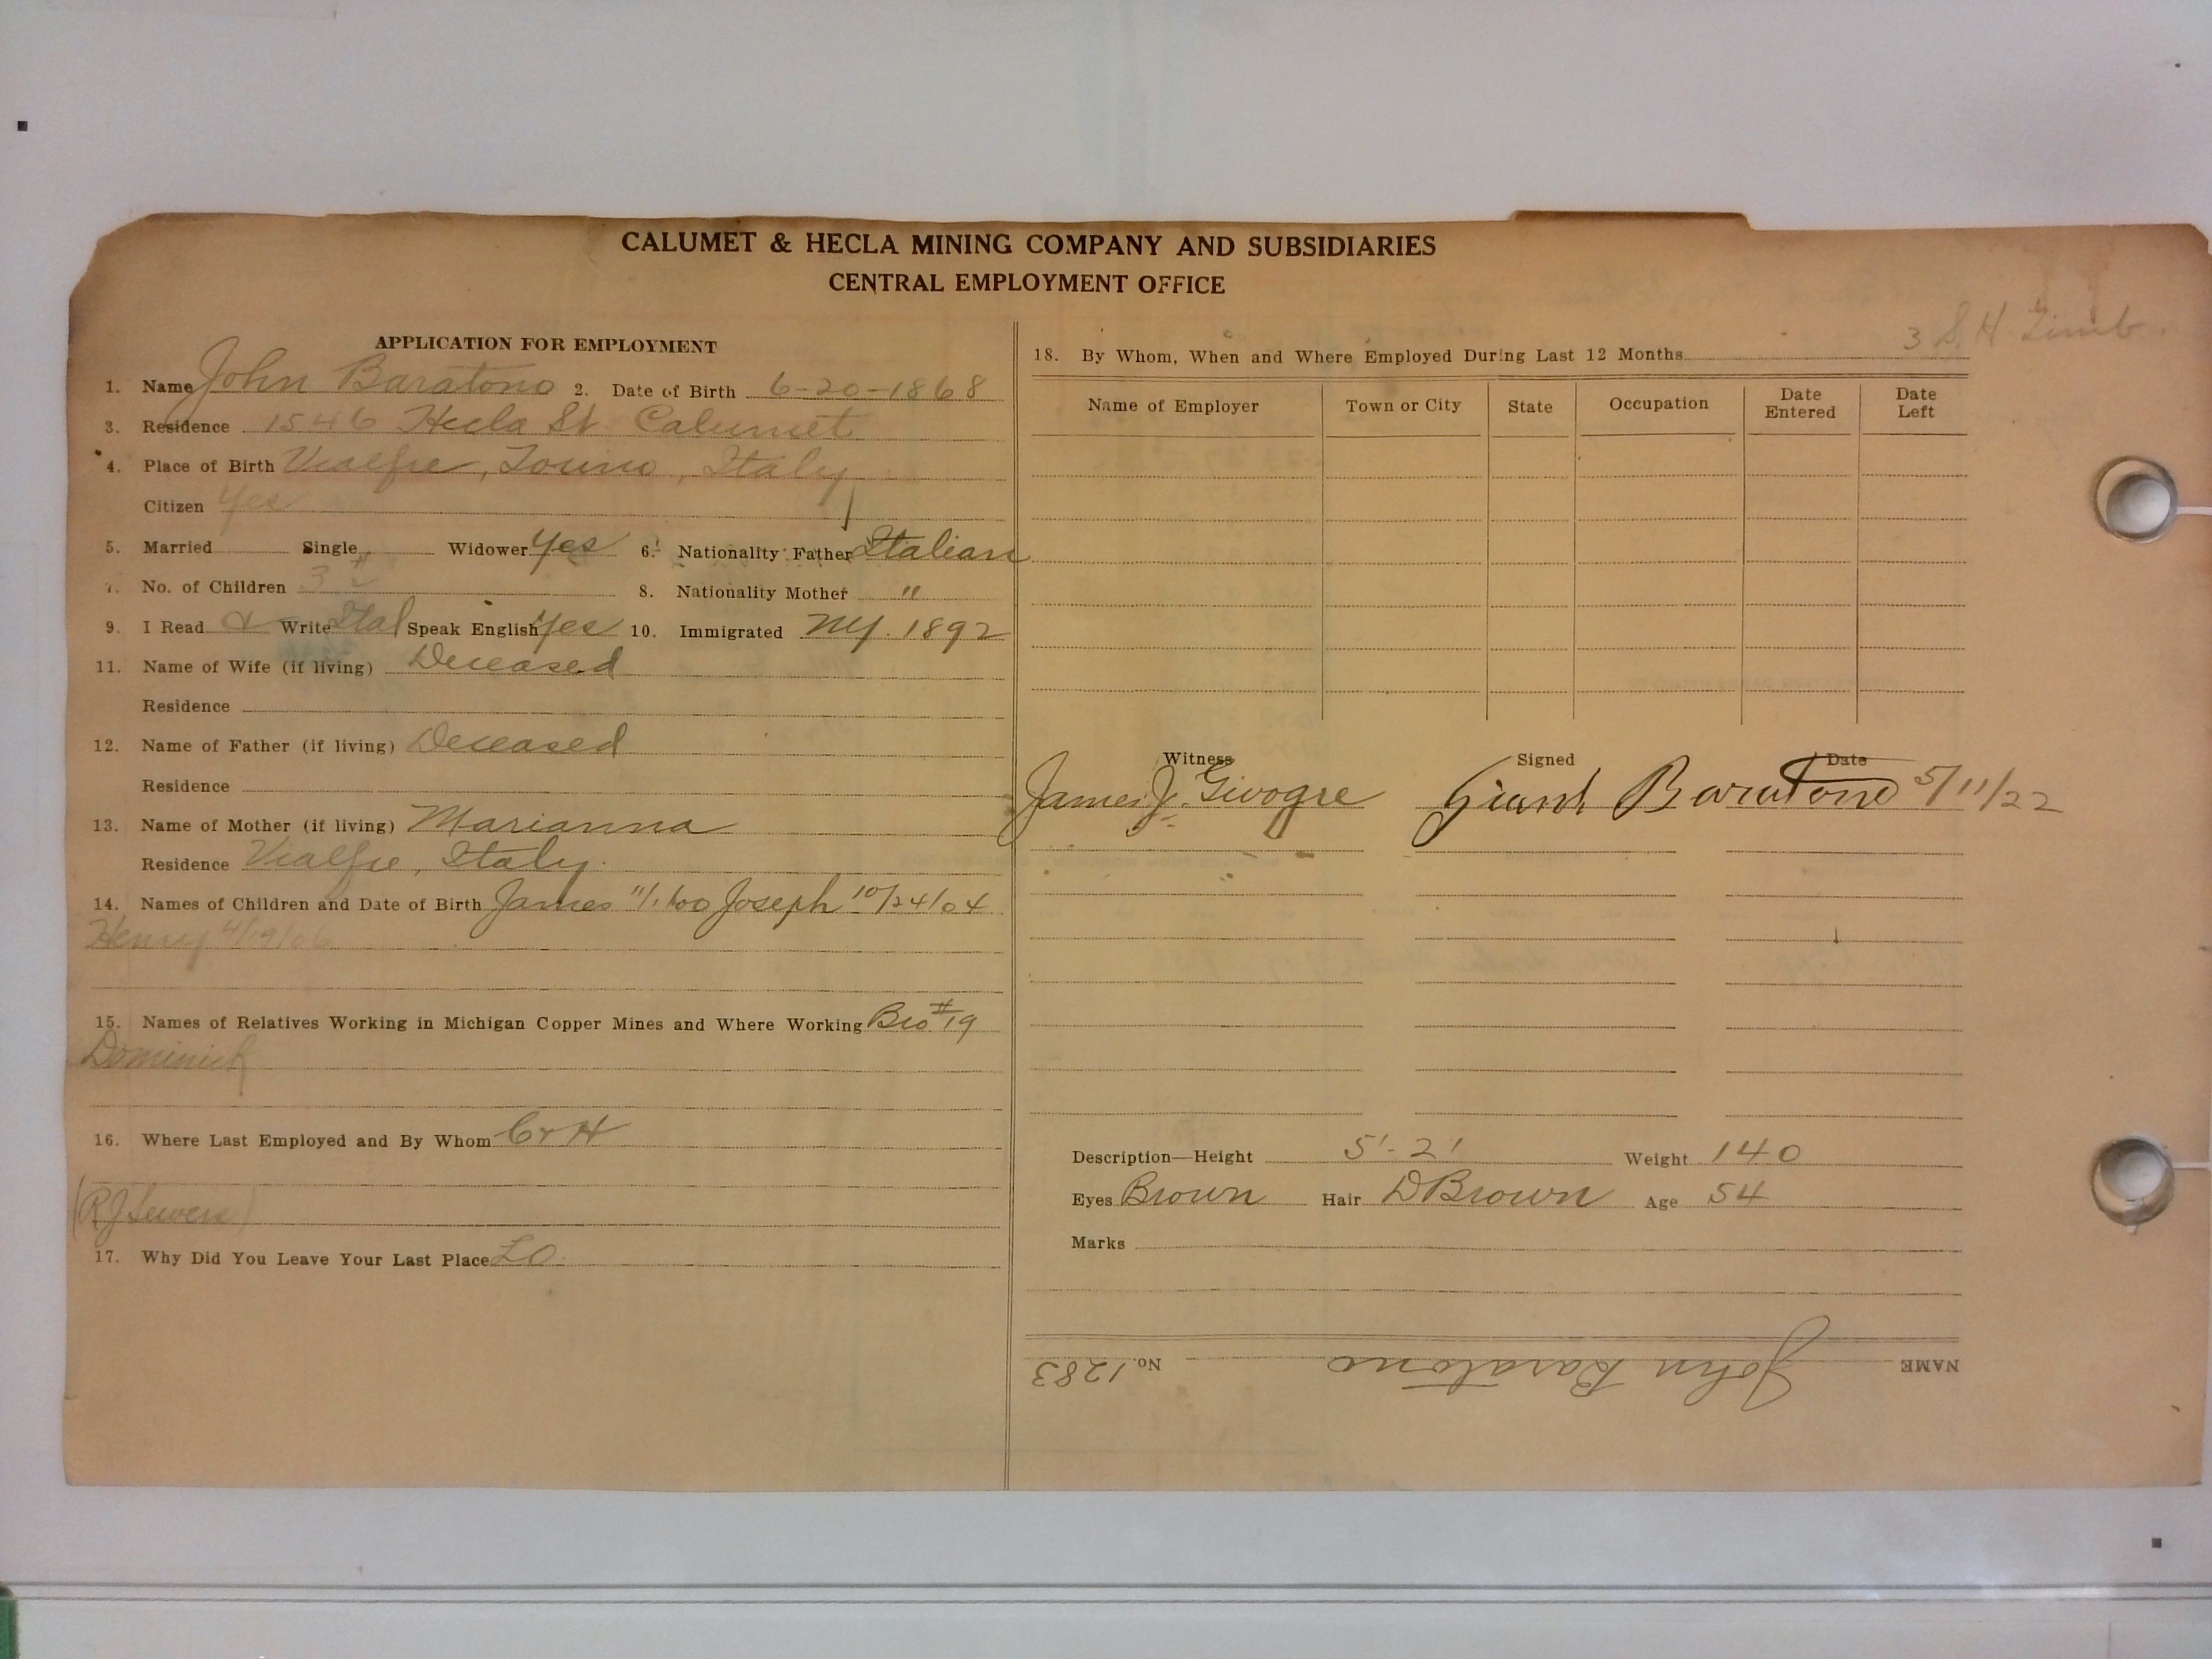 CALUMET & HECLA MINING COMPANY AND SUBSIDIARIES
CENTRAL EMPLOYMENT OFFICE
APPLICATION FOR EMPLOYMENT
1. Name John Baratono 2. Date of Birth 6-20-1868
3. Residence 1546 Hecla St Calumet
4. Place of Birth Vialfre, Torino, Italy
Citizen Yes
5. Married Single Widower Yes 6. Nationality Father Italian
7. No. of Children 3
8. Nationality Mother "
9. I Read & Write Ital Speak English Yes 10. Immigrated NY. 1892
11. Name of Wife (if living) Deceased
Residence
12. Name of Father (if living) Deceased
Residence
13. Name of Mother (if living) Marianna
Residence Vialfre, Italy.
14. Names of Children and Date of Birth James Joseph 10/24/04
Henry 4/19/06
15. Names of Relatives Working in Michigan Copper Mines and Where Working Bro #19
Dominick
16. Where Last Employed and By Whom C & H
17. Why Did You Leave Your Last Place LO.
3 S. H. Timb.
18. By Whom, When and Where Employed During Last 12 Months
Name of Employer Town or City State Occupation Date Entered Date Left
Witness Signed Date
James J. Givogre Baratono 5/11/22
Description—Height 5'-2' Weight 140
Eyes Brown Hair D Brown Age 54
Marks
NAME John Baratono No. 1283